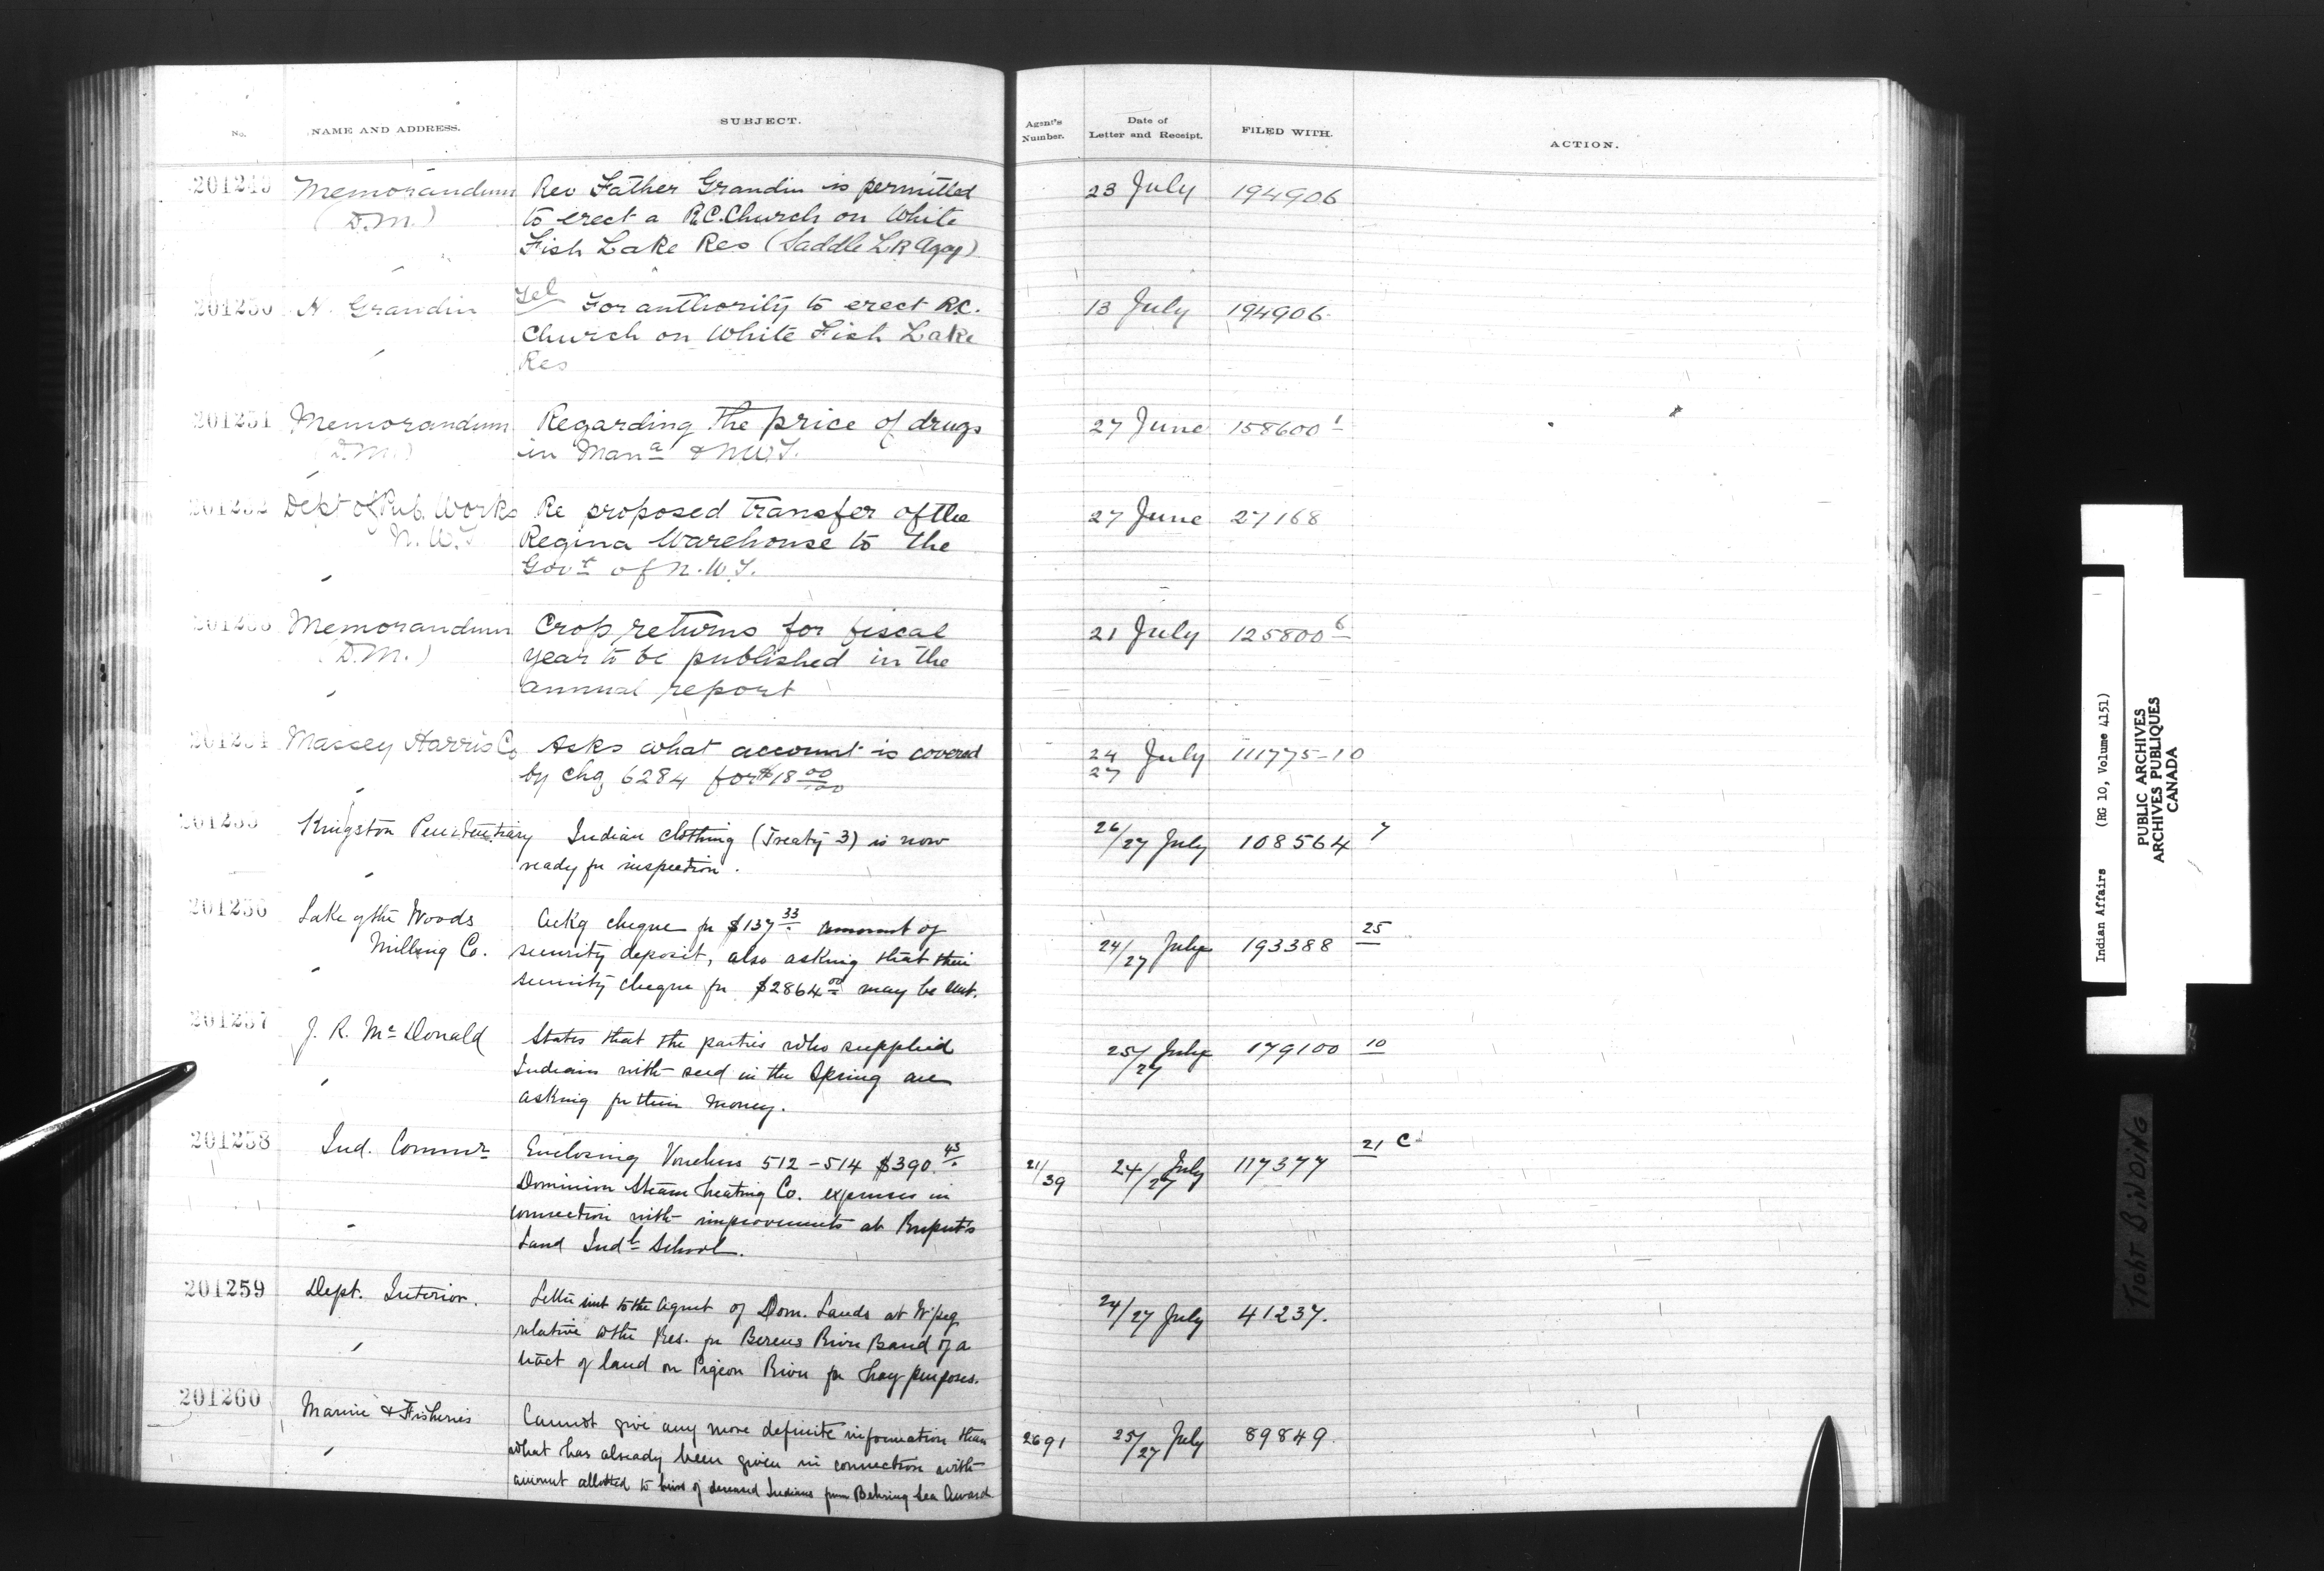 No. NAME AND ADDRESS. SUBJECT. Agent's Number. Date of Letter and Receipt. FILED WITH. ACTION.
201249 Memorandum Rev Father Grandin is permitted 23 July 194906
(D.M.) to erect a R.C. Church on White
Fish Lake Res (Saddle Lk Agcy)
201250 H. Grandin Tel For authority to erect R.C. 13 July 194906
Church on White Fish Lake
Res
201251 Memorandum Regarding the price of drugs 27 June 158600 1
(D.M.) in Mana & N.W.T.
201252 Dept of Pub. Works Re proposed transfer of the 27 June 27168
N.W.T Regina Warehouse to the
Govt of N.W.T.
201253 Memorandum Crop returns for fiscal 21 July 125800 6
(D.M.) year to be published in the
annual report
201254 Massey Harris Co Asks what account is covered 24 July 111775-10
by chq 6284 for $18 00/100 27
201255 Kingston Penitentiary Indian clothing (Treaty 3) is now 26/27 July 108564 7
ready for inspection.
201256 Lake of the Woods Ackg cheque for $137 33 amount of 24/27 July 193388 25
Milling Co. security deposit, also asking that their
security cheque for $2864 00 may be sent.
201257 J. R. McDonald States that the parties who supplied 25/27 July 179100 10
Indians with seed in the Spring are
asking for their money.
201258 Ind. Commr Enclosing Vouchers 512-514 $390.45 21/39 24/27 July 117377 21 C
Dominion Steam heating Co. expenses in
connection with improvements at Rupert's
Land Indl School.
201259 Dept. Interior. Letter sent to the Agent of Dom. Lands at W'peg 24/27 July 41237.
relative to the Res. for Berens River Band of a
tract of land on Pigeon River for hay purposes.
201260 Marine & Fisheries Cannot give any more definite information than 2691 25/27 July 89849
what has already been given in connection with
amount allotted to heirs of deceased Indians from Behring Sea Award
Indian Affairs (RG 10, Volume 4151)
PUBLIC ARCHIVES
ARCHIVES PUBLIQUES
CANADA
TIGHT BINDING